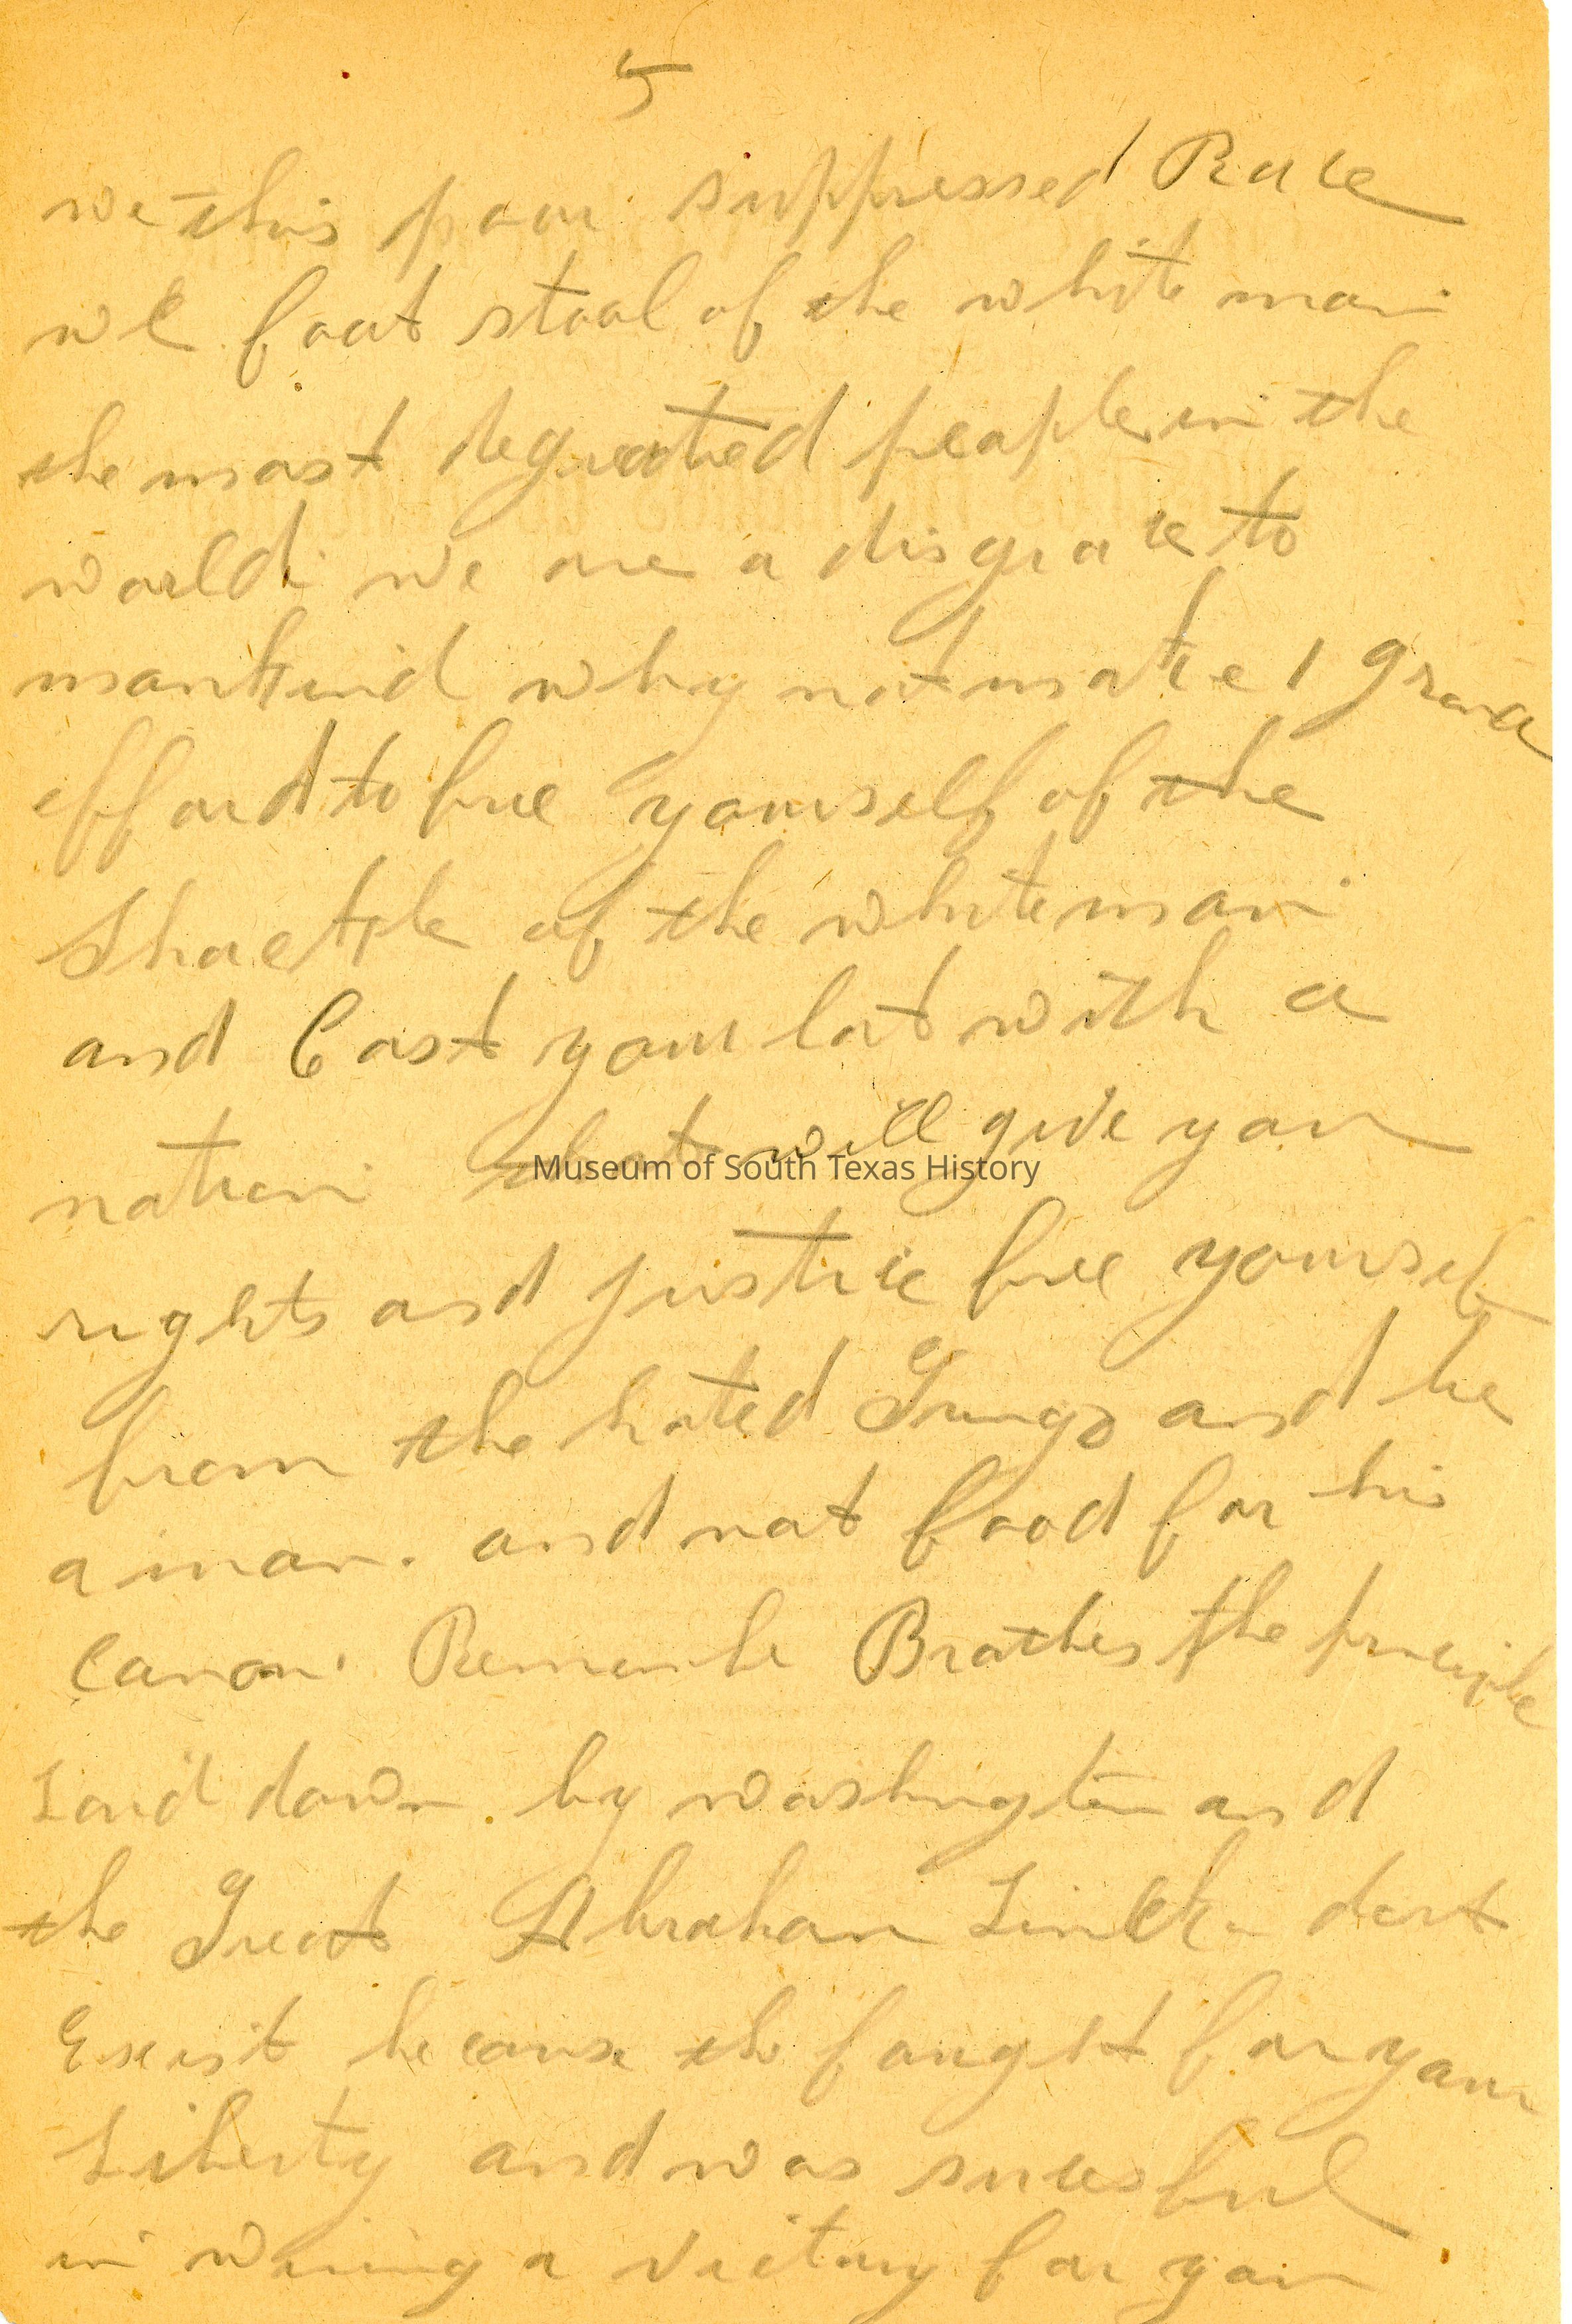 5
we this poor suppressed Race
we foot stool of the white man
the most degrated people in the
world. we are a disgrace to
mankind why not make 1 grand
efford to free yourself of the
Shackle of the white man
and Cast your lot with a
nation that will give you
Museum of South Texas History
rights and justice free yourself
from the hated Gringo and be
a man. and not food for his
Canon. Remembe Brothers the principle
Laid down by washington and
the Great Abraham Lincoln dont
Exsist because the fought for your
Liberty and was sucesful
in wining a victory for you